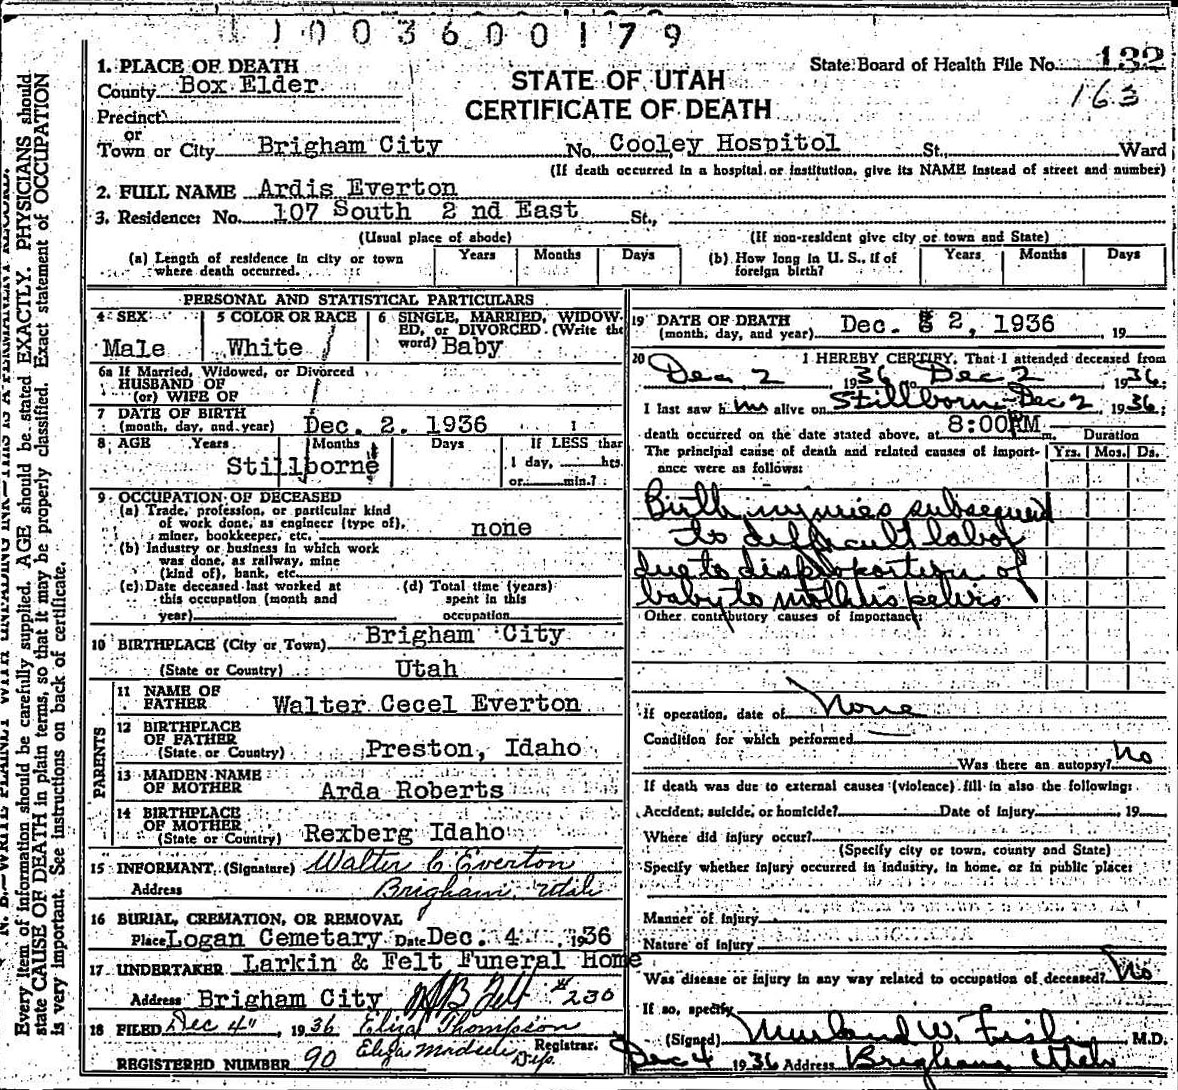 1003600179
1. PLACE OF DEATH
County Box Elder
Precinct
or
Town or City Brigham City
STATE OF UTAH
CERTIFICATE OF DEATH
State Board of Health File No. 132
163
No. Cooley Hospitol St., Ward
(If death occurred in a hospital or institution, give its NAME instead of street and number)
2. FULL NAME Ardis Everton
3. Residence: No. 107 South 2 nd East St.,
(Usual place of abode) (If non-resident give city or town and State)
(a) Length of residence in city or town where death occurred. Years Months Days
(b) How long in U. S., if of foreign birth? Years Months Days
PERSONAL AND STATISTICAL PARTICULARS
4 SEX 5 COLOR OR RACE 6 SINGLE, MARRIED, WIDOW-
ED, or DIVORCED. (Write the
Male White word) Baby
6a If Married, Widowed, or Divorced
HUSBAND OF
(or) WIFE OF
7 DATE OF BIRTH
(month, day, and year) Dec. 2. 1936
8 AGE Years Months Days If LESS than
Stillborne 1 day, hrs.
or min.?
9 OCCUPATION OF DECEASED
(a) Trade, profession, or particular kind
of work done, as engineer (type of),
miner, bookkeeper, etc. none
(b) Industry or business in which work
was done, as railway, mine
(kind of), bank, etc.
(c) Date deceased last worked at
this occupation (month and
year)
(d) Total time (years)
spent in this
occupation
10 BIRTHPLACE (City or Town) Brigham City
(State or Country) Utah
PARENTS
11 NAME OF
FATHER Walter Cecel Everton
12 BIRTHPLACE
OF FATHER
(State or Country) Preston, Idaho
13 MAIDEN NAME
OF MOTHER Arda Roberts
14 BIRTHPLACE
OF MOTHER
(State or Country) Rexberg Idaho
15 INFORMANT, (Signature) Walter C Everton
Address Brigham, Utah
16 BURIAL, CREMATION, OR REMOVAL
Place Logan Cemetary Date Dec. 4 1936
17 UNDERTAKER Larkin & Felt Funeral Home
Address Brigham City #230
18 FILED Dec 4" 1936 Eliza Thompson
Registrar.
REGISTERED NUMBER 90 Dep.
19 DATE OF DEATH
(month, day, and year) Dec. 2, 1936 19
20 I HEREBY CERTIFY, That I attended deceased from
Dec 2 1936 to Dec 2, 1936;
I last saw him alive on Stillborn Dec 2, 1936;
death occurred on the date stated above, at 8:00 PM m. Duration
The principal cause of death and related causes of import-
ance were as follows: Yrs. Mos. Ds.
Birth injuries subsequent
to difficult labor
due to disproportion of
baby to mothers pelvis
Other contributory causes of importance:
If operation, date of None
Condition for which performed
Was there an autopsy? No
If death was due to external causes (violence) fill in also the following:
Accident, suicide, or homicide? Date of injury 19
Where did injury occur?
(Specify city or town, county and State)
Specify whether injury occurred in industry, in home, or in public place:
Manner of injury
Nature of injury
Was disease or injury in any way related to occupation of deceased? No
If so, specify
(Signed) M.D.
Dec 4 1936 Address Brigham, Utah
Every item of information should be carefully supplied. AGE should be stated EXACTLY. PHYSICIANS should
state CAUSE OF DEATH in plain terms, so that it may be properly classified. Exact statement of OCCUPATION
is very important. See instructions on back of certificate.